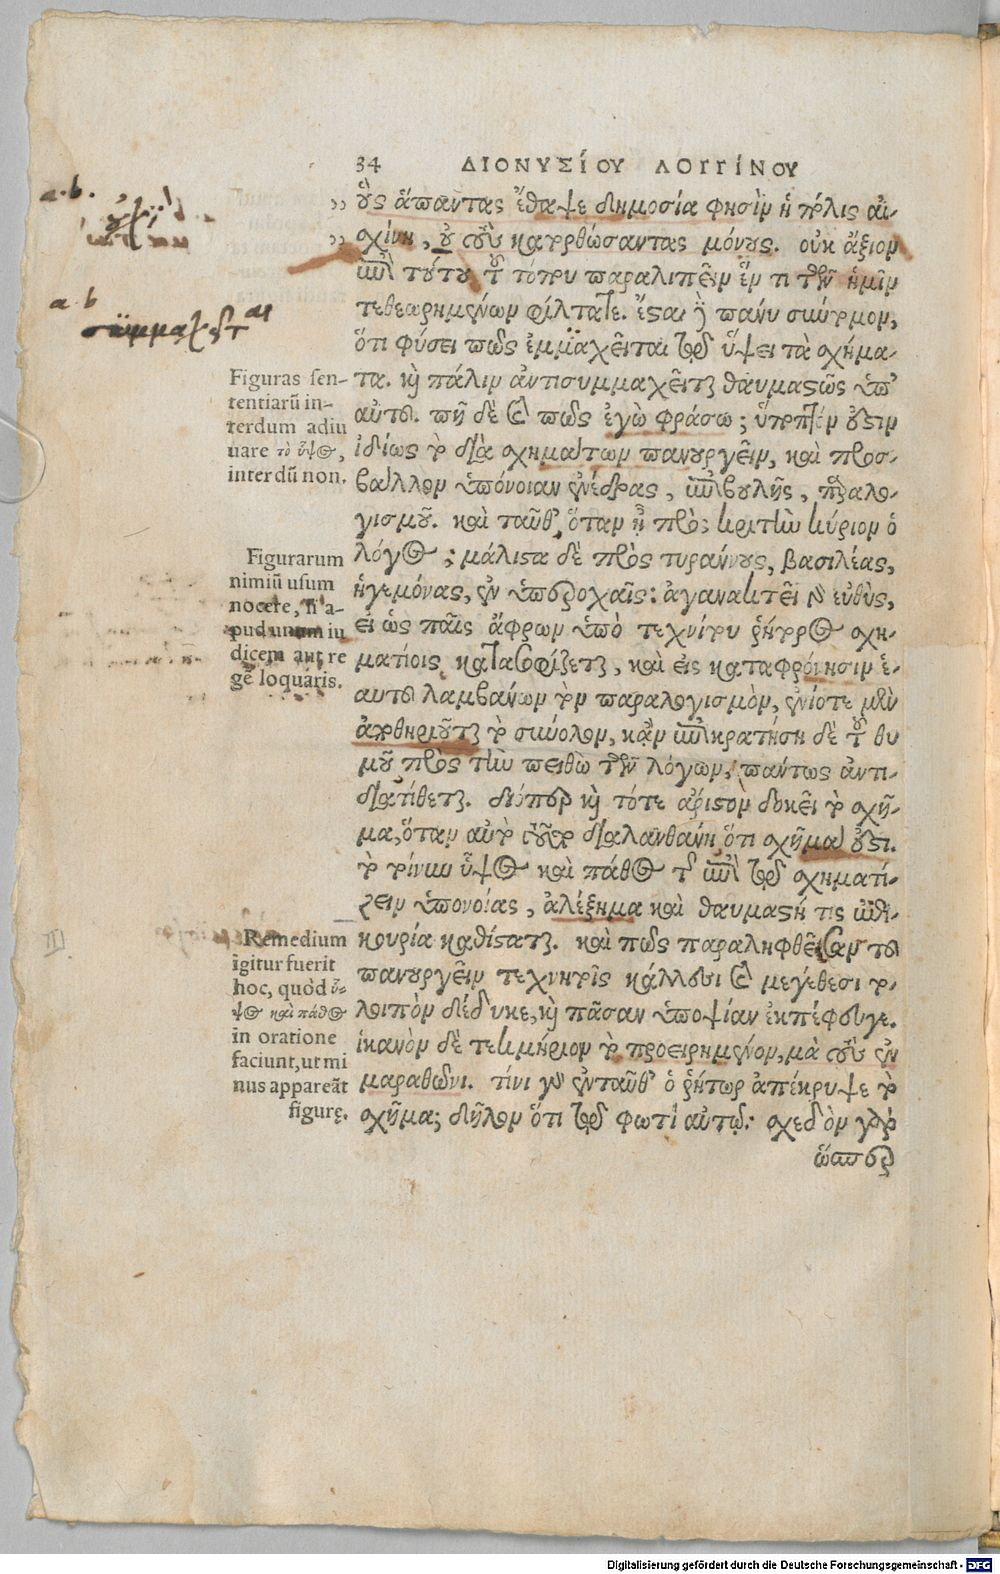 34 ΔΙΟΝΥΣίΟΥ ΛΟΓΓίΝΟΥ
οὓς ἅπαντας ἔθαψε δημοσία φησὶν ἡ πόλις αἰ-
σχίνη, οὐ τοὺς κατορθώσαντας μόνους. οὐκ ἄξιον
ἐπὶ τούτου τοῦ τόπου παραλιπεῖν ἕν τι τῶν ἡμῖν
τεθεωρημένων φίλτατε. ἔσται γὰρ πάνυ σύντομον,
ὅτι φύσει πως συμμαχεῖται τῷ ὕψει τὰ σχήμα-
τα. καὶ πάλιν ἀντισυμμαχεῖται θαυμαστῶς ὑπ'
αὐτοῦ. πῆ δὲ καὶ πῶς ἐγὼ φράσω; ὕποπτόν ἐστιν
ἰδίως τὸ διὰ σχημάτων πανουργεῖν, καὶ προσ-
βάλλον ὑπόνοιαν ἐνέδρας, ἐπιβουλῆς, παραλο-
γισμοῦ. καὶ ταῦθ' ὅταν ᾖ πρὸς κριτὴν κύριον ὁ
λόγος; μάλιστα δὲ πρὸς τυράννους, βασιλέας,
ἡγεμόνας, ἐν ὑπεροχαῖς: ἀγανακτεῖ γὰρ εὐθὺς,
εἰ ὡς παῖς ἄφρων ὑπὸ τεχνίτου ῥήτορος σχη-
ματίοις κατασοφίζεται, καὶ εἰς καταφρόνησιν ἑ-
αυτοῦ λαμβάνων τὸν παραλογισμὸν, ἐνίοτε μὲν
ἀποθηριοῦται τὸ σύνολον, κἂν ἐπικρατήσῃ δὲ τοῦ θυ
μοῦ πρὸς τὴν πειθὼ τῶν λόγων, πάντως ἀντι-
διατίθεται. διόπερ καὶ τότε ἄριστον δοκεῖ τὸ σχῆ-
μα, ὅταν αὐτὸ τοῦτο διαλανθάνῃ ὅτι σχῆμά ἐστι.
τὸ τοίνυν ὕψος καὶ πάθος τῆς ἐπὶ τῷ σχηματί-
ζειν ὑπονοίας, ἀλέξημα καὶ θαυμαστή τις ἐπι-
κουρία καθίσταται. καὶ πως παραληφθεῖσαν τοῦ
πανουργεῖν τεχνη τοῖς κάλλεσι καὶ μεγέθεσι τὸ
λοιπὸν δέδυκε, καὶ πᾶσαν ὑποψίαν ἐκπέφευγε.
ἱκανὸν δὲ τεκμήριον τὸ προειρημένον, μὰ τοὺς ἐν
μαραθῶνι. τίνι γὰρ ἐνταῦθ' ὁ ῥήτωρ ἀπέκρυψε τὸ
σχῆμα; δῆλον ὅτι τῷ φωτὶ αὐτῷ: σχεδὸν γὰρ
ὥσπερ
a.b.
a b
Figuras sen-
tentiarũ in-
terdum adiu
uare τὸ ὕψος,
interdũ non.
Figurarum
nimiũ usum
nocere, si a-
pud unum iu
dicem aut re
gẽ loquaris.
Remedium
igitur fuerit
hoc, quòd ὕ-
ψος καὶ πάθος
in oratione
faciunt, ut mi
nus appareãt
figurę.
Digitalisierung gefördert durch die Deutsche Forschungsgemeinschaft - DFG